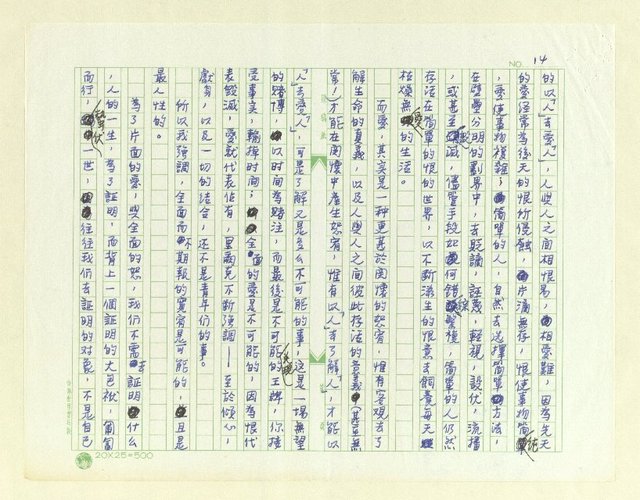 NO. 14
的以「人」去愛人」,人與人之間相恨易,相愛難,因為先天
的愛經常為後天的恨所侵蝕,片滴無存,恨使事物簡單化
,愛使事物複雜;簡單的人,自然去選擇簡單的方法,
在壁壘分明的劃界中,去貶謫,誣蔑,輕視,設伏,流播
,或甚至殲滅,儘管手段如何錯綜繁複,簡單的人仍然
存活在簡單的恨的世界,以不斷滋生的恨意去飼養每天
枯燥無愛的生活。
而愛,其實是一種更甚於關懷的怒宥,惟有客觀去了
解生命的真義,以及人與人之間彼此存活的意義
當」,才能在關懷中產生恕宥,惟有以「人」去了解「人」,才能以
「人」去愛「人」,可是了解又是多麼不可能的事,這是一場無望
的賭博,以時間為賭注,而最後是不可能的王牌,你接
受事實,輸掉時間;全面的愛是不可能的,因為恨代
表毀滅,愛就代表佔有,里爾克不斷強調——至於傾心,
獻身,以及一切的結合,還不是青年們的事。
所以我強調,全面而不期報的寬宥是可能的,且是
最人性的。
為了片面的愛,與全面的恕,我們不需去證明什么
,人的一生,為了証明,而背上一個証明的大包袱,匍匐
而行,勞役一世,往往我們去証明的對象,不是自己
20X25=500